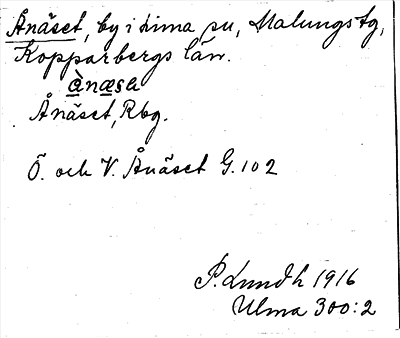 Ånäset, by i Lima sn, Malungs tg,
Kopparbergs län.
ånæsə
Ånäset, Rbg.
Ö. och V. Ånäset G. 102
P. Lundh 1916
Ulma 300:2